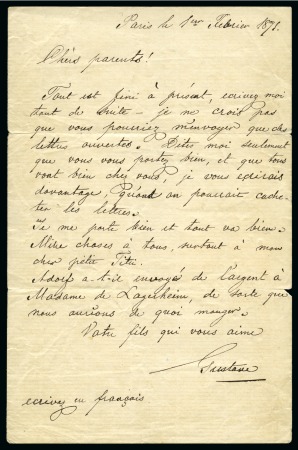 Paris le 1er Fevrier 1871.
Chèrs parents!
Tout est fini à présent, écrivez moi
tout de suite – je me crois pas
que vous pourriez m'envoyer que des
lettres ouvertes. Dites moi seulement
que vous vous portez bien, et que tous
vont bien chez vous, je vous écrirais
davantage, quand on pourrait cache-
ter les lettres.
Je me porte bien et tout va bien.
Mille choses à tous, surtout à mon
cher petit Titi.
Adolf a-t-il envoyés de l'argent à
Madame de Lagerheim, de sorte que
nous aurions de quoi manger.
Votre fils qui vous aime
Gustave
ecrivez en français